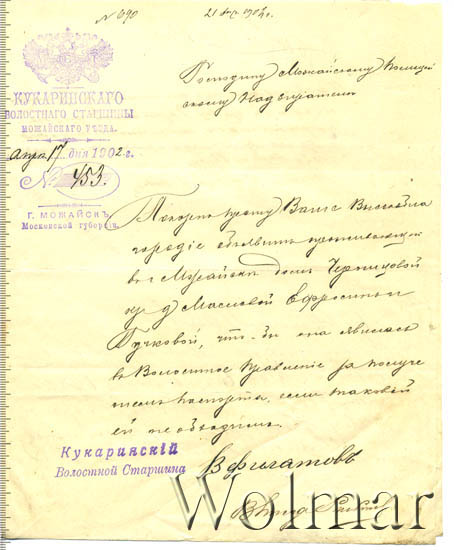 № 690
21 апр 1902 г.
КУКАРИНСКАГО
ВОЛОСТНАГО СТАРШИНЫ
МОЖАЙСКАГО УѢЗДА.
Апрѣ. 17 дня 1902 г.
№ 453.
Г. МОЖАЙСКЪ,
Московской губерніи.
Господину Можайскому Полицей
скому Надзирателю
Покорно прошу Ваше Высокобла
городіе объявить проживающей
въ г. Можайскѣ домъ
кр. д. Масловой Ефросиньи
Пучковой, что-бы она явилась
въ Волостное Правленіе за получе
ніемъ паспорта, если таковой
ей необходимъ.
Кукаринскій
Волостной Старшина
В Филатовъ
Wolmar